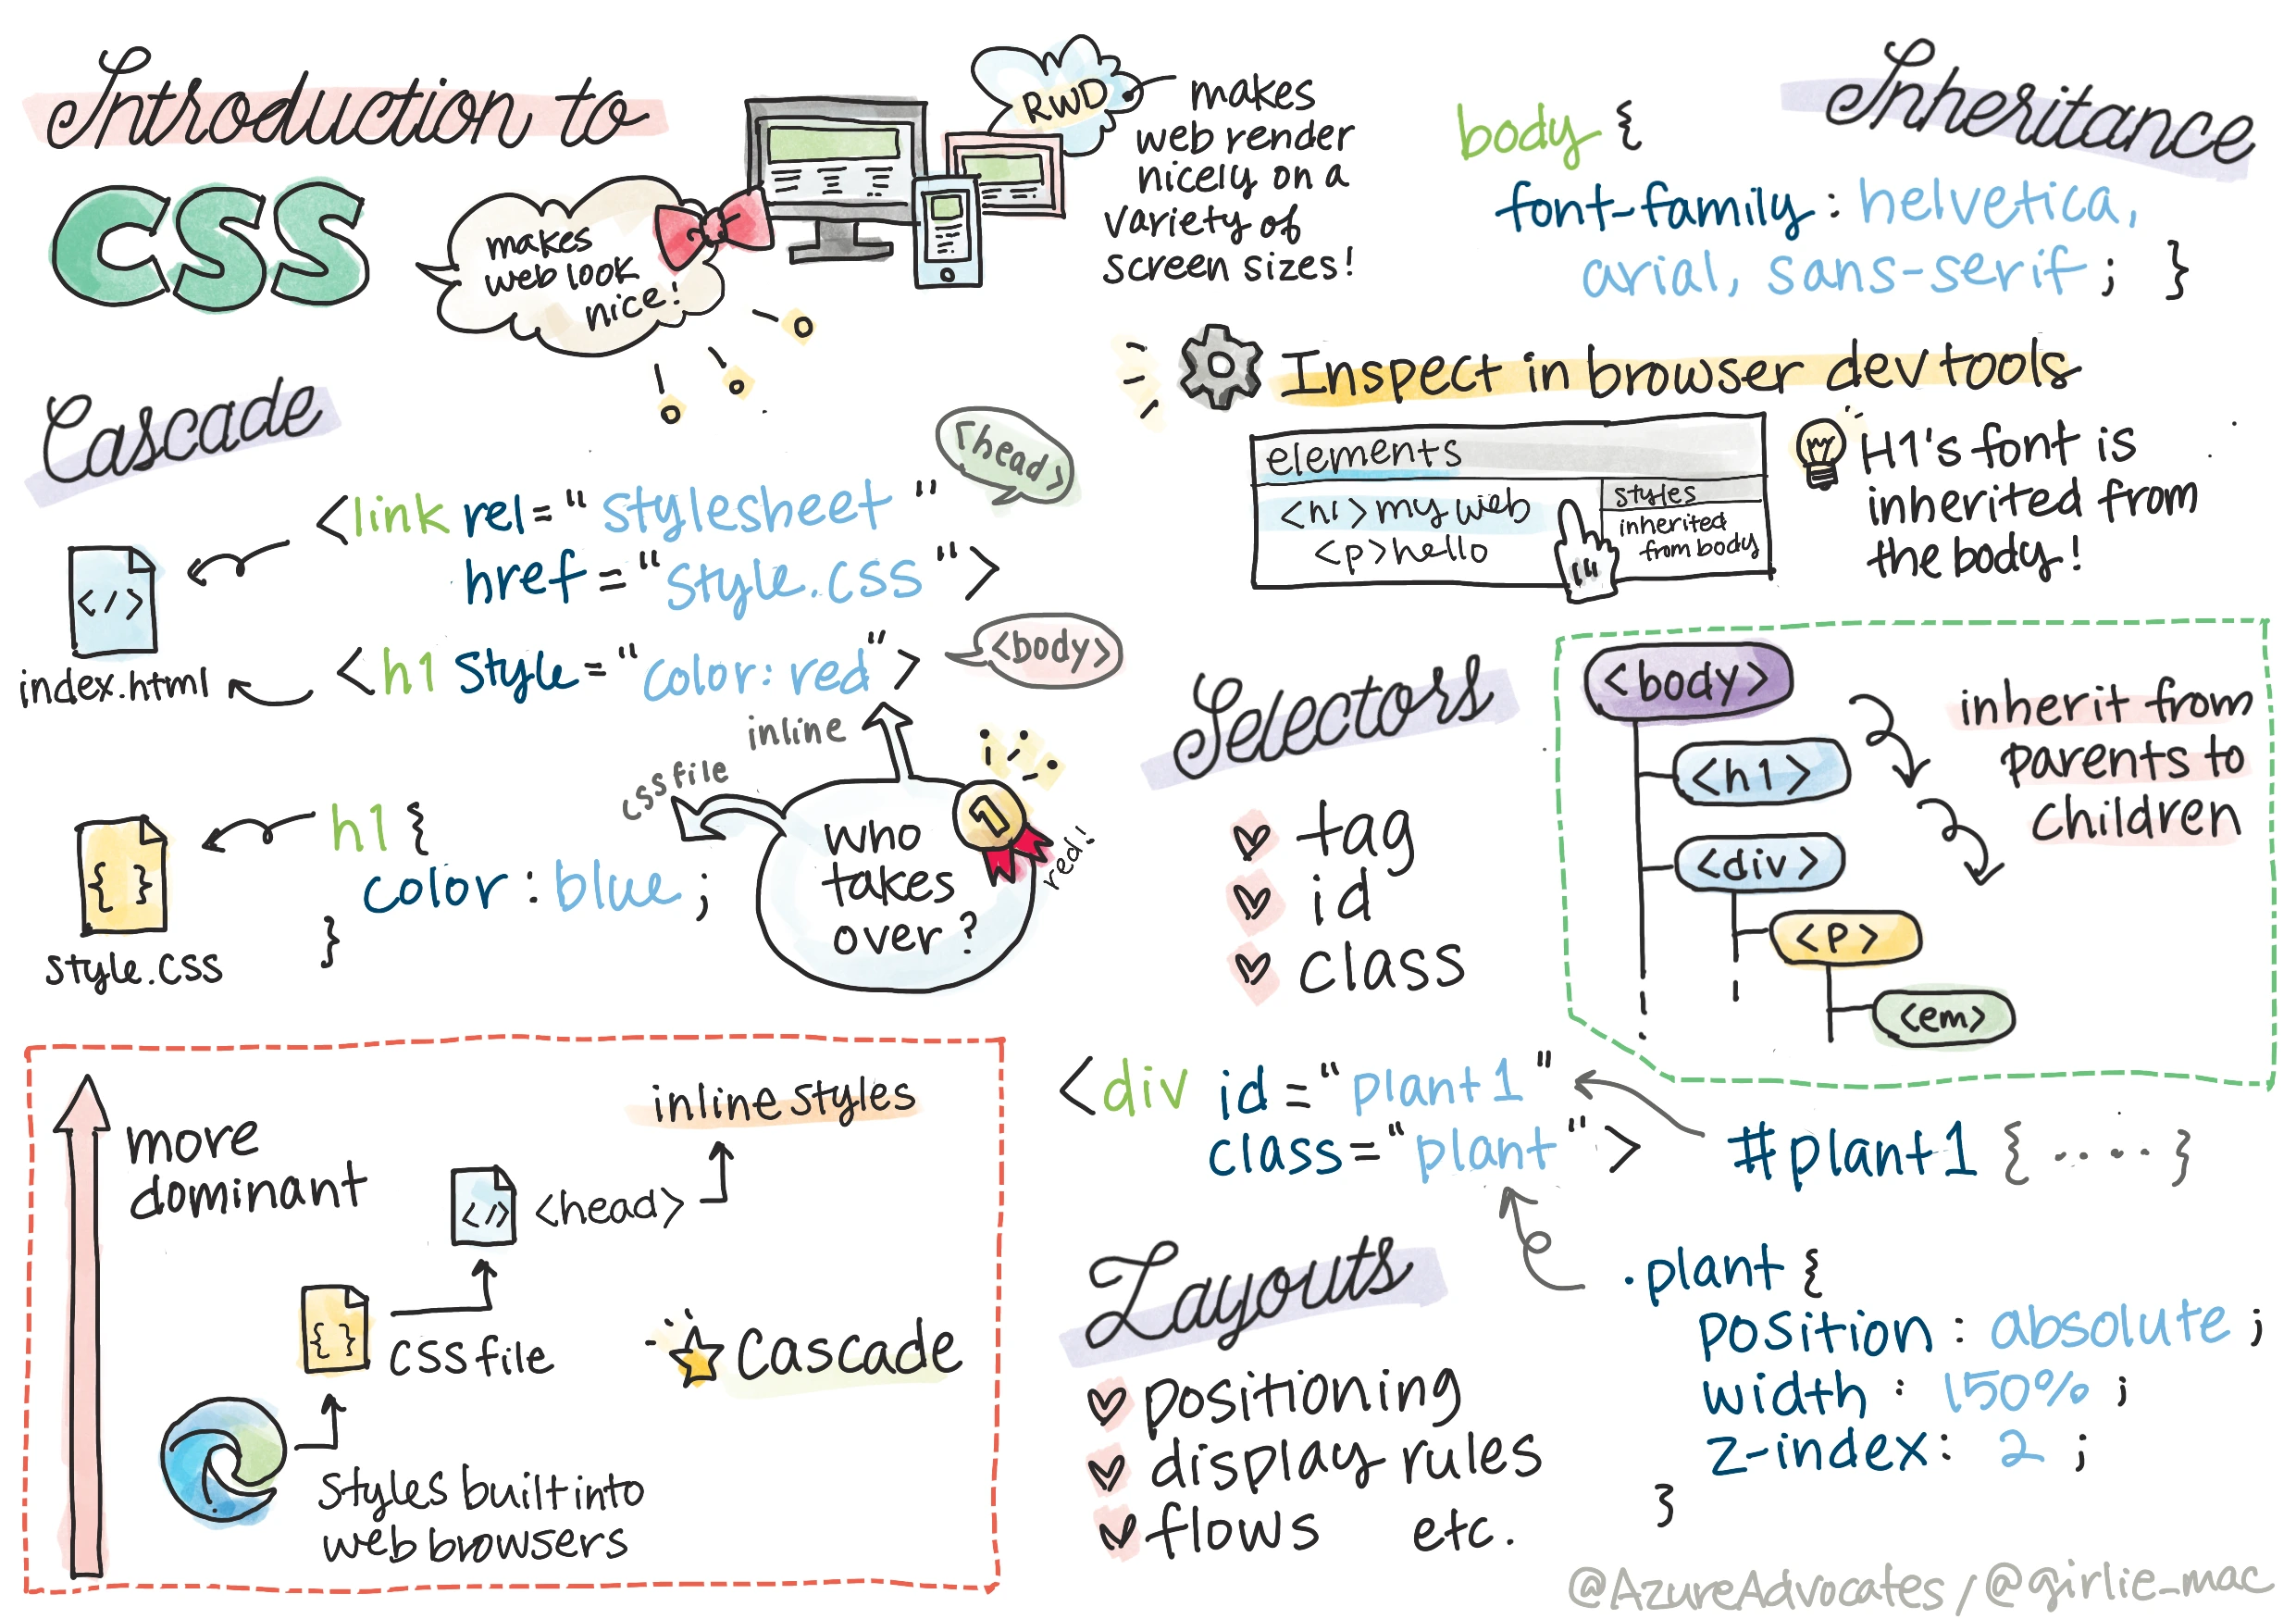 Introduction to
CSS
makes
web look
nice!
RWD
makes
web render
nicely on a
variety of
screen sizes!
Cascade
<head>
<link rel="stylesheet"
href="style.css">
</>
index.html
<h1 style="color: red">
<body>
inline
css file
h1 {
color: blue;
}
{ }
style.css
who
takes
over?
1
red!
more
dominant
inline styles
</>
<head>
{ }
CSS file
Cascade
styles built into
web browsers
Inheritance
body {
font-family: helvetica,
arial, sans-serif; }
Inspect in browser dev tools
elements
<h1>my web
<p>hello
styles
inherited
from body
H1's font is
inherited from
the body!
Selectors
tag
id
class
<body>
<h1>
<div>
<p>
<em>
inherit from
parents to
children
<div id="plant1"
class="plant">
#plant1 {.....}
.plant {
position: absolute;
width: 150%;
z-index: 2;
}
Layouts
positioning
display rules
flows etc.
@AzureAdvocates/@girlie_mac